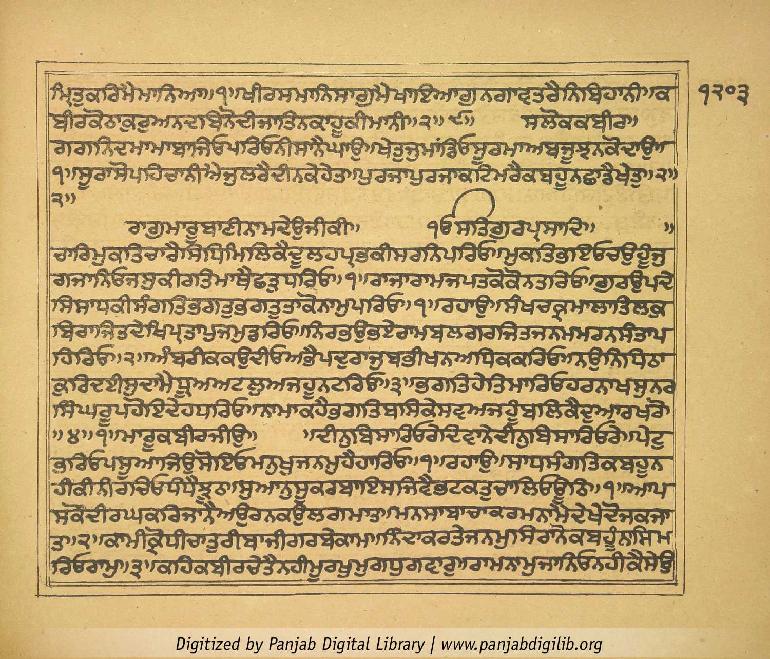 ਮਿਤ੍ਰੁਕਰਿਮੈਮਾਨਿਆ॥੧॥ਖੀਰਸਮਾਨਿਸਾਗੁਮੈਖਾਇਆਗੁਨਗਾਵਤਰੈਨਿਬਿਹਾਨੀ॥ਕ
ਬੀਰਕੋਠਾਕੁਰੁਅਨਦਬਿਨੋਦੀਜਾਤਿਨਕਾਹੂਕੀਮਾਨੀ॥੨॥੯॥ ਸਲੋਕਕਬੀਰ॥
ਗਗਨਿਦਮਾਮਾਬਾਜਿਓਪਰਿਓਨੀਸਾਨੈਘਾਉ॥ਖੇਤੁਜੁਮਾਂਡਿਓਸੂਰਮਾਅਬਜੂਝਨਕੋਦਾਉ॥
੧॥ਸੂਰਾਸੋਪਹਿਚਾਨੀਐਜੁਲਰੈਦੀਨਕੇਹੇਤ॥ਪੁਰਜਾਪੁਰਜਾਕਟਿਮਰੈਕਬਹੂਨਛਾਡੈਖੇਤੁ॥੨॥
੨॥
ਰਾਗੁਮਾਰੂਬਾਣੀਨਾਮਦੇਉਜੀਕੀ॥ ੴਸਤਿਗੁਰਪ੍ਰਸਾਦਿ॥ ॥
ਚਾਰਿਮੁਕਤਿਚਾਰੈਸਿਧਿਮਿਲਿਕੈਦੂਲਹਪ੍ਰਭਕੀਸਰਨਿਪਰਿਓ॥ਮੁਕਤਿਭਇਓਚਉਹੂੰਜੁ
ਗਜਾਨਿਓਜਸੁਕੀਰਤਿਮਾਥੈਛਤ੍ਰੁਧਰਿਓ॥੧॥ਰਾਜਾਰਾਮਜਪਤਕੋਕੋਨਤਰਿਓ॥ਗੁਰਉਪਦੇ
ਸਿਸਾਧਕੀਸੰਗਤਿਭਗਤੁਭਗਤੁਤਾਕੋਨਾਮੁਪਰਿਓ॥੧॥ਰਹਾਉ॥ਸੰਖਚਕ੍ਰਮਾਲਾਤਿਲਕੁ
ਬਿਰਾਜਿਤਦੇਖਿਪ੍ਰਤਾਪੁਜਮੁਡਰਿਓ॥ਨਿਰਭਉਭਏਰਾਮਬਲਗਰਜਿਤਜਨਮਮਰਨਸੰਤਾਪ
ਹਿਰਿਓ॥੨॥ਅੰਬਰੀਕਕਉਦੀਓਅਭੈਪਦੁਰਾਜੁਬਭੀਖਨਅਧਿਕਕਰਿਓ॥ਨਉਨਿਧਿਠਾ
ਕੁਰਿਦਈਸੁਦਾਮੈਧ੍ਰੂਅਅਟਲੁਅਜਹੂਨਟਰਿਓ॥੩॥ਭਗਤਿਹੇਤਿਮਾਰਿਓਹਰਨਾਖਸੁਨਰ
ਸਿੰਘਰੂਪਹੋਇਦੇਹਧਰਿਓ॥ਨਾਮਾਕਹੈਭਗਤਿਬਸਿਕੇਸਵਅਜਹੂੰਬਲਿਕੈਦੁਆਰਖਰੋ
॥੪॥੧॥ਮਾਰੂਕਬੀਰਜੀਉ॥ ॥ਦੀਨੁਬਿਸਾਰਿਓਰੇਦਿਵਾਨੇਦੀਨੁਬਿਸਾਰਿਓਰੇ॥ਪੇਟੁ
ਭਰਿਓਪਸੂਆਜਿਉਸੋਇਓਮਨੁਖੁਜਨਮੁਹੈਹਾਰਿਓ॥੧॥ਰਹਾਉ॥ਸਾਧਸੰਗਤਿਕਬਹੂਨ
ਹੀਕੀਨੀਰਚਿਓਧੰਧੈਝੂਠ॥ਸੁਆਨਸੂਕਰਬਾਇਸਜਿਵੈਭਟਕਤੁਚਾਲਿਓਊਠਿ॥੧॥ਆਪ
ਸਕੋਦੀਰਘੁਕਰਿਜਾਨੈਅਉਰਨਕਉਲਗਮਾਤ॥ਮਨਸਾਬਾਚਾਕਰਮਨਾਮੈਦੇਖੇਦੋਜਕਜਾ
ਤ॥੨॥ਕਾਮੀਕ੍ਰੋਧੀਚਾਤੁਰੀਬਾਜੀਗਰਬੇਕਾਮ॥ਨਿੰਦਾਕਰਤੇਜਨਮੁਸਿਰਾਨੋਕਬਹੂਨਸਿਮ
ਰਿਓਰਾਮੁ॥੩॥ਕਹਿਕਬੀਰਚੇਤੈਨਹੀਮੂਰਖੁਮੁਗਧੁਗਵਾਰੁ॥ਰਾਮਨਾਮੁਜਾਨਿਓਨਹੀਕੈਸੇਉ
੧੨੦੩
Digitized by Panjab Digital Library | www.panjabdigilib.org